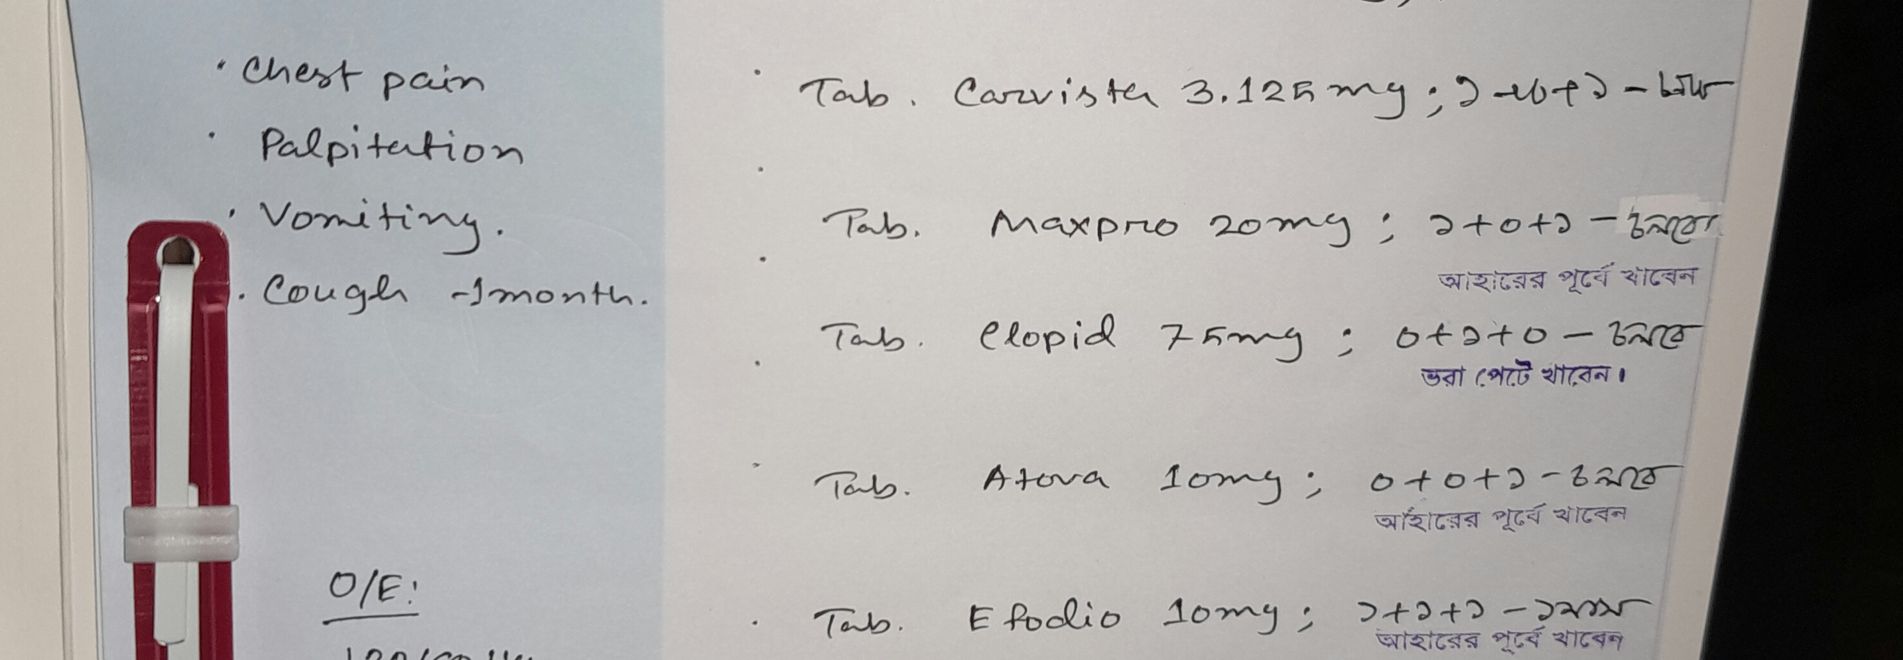 · Chest pain
· Palpitation
· Vomiting.
· Cough -1month.
O/E:
· Tab. Carvista 3.125mg; ১+০+১ - চলবে
· Tab. Maxpro 20mg; ১+০+১ - চলবে
আহারের পূর্বে খাবেন
· Tab. Clopid 75mg; ০+১+০ - চলবে
ভরা পেটে খাবেন।
· Tab. Atova 10mg; ০+০+১ - চলবে
আহারের পূর্বে খাবেন
· Tab. Efodio 10mg; ১+১+১ - ১মাস
আহারের পূর্বে খাবেন